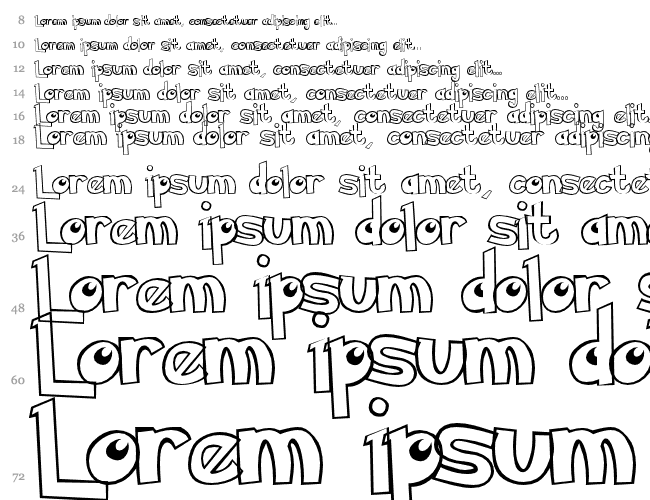 8 Lorem ipsum dolor sit amet, consectetuer adipiscing elit...
10 Lorem ipsum dolor sit, amet, consectetuer adipiscing elit...
12 Lorem ipsum dolor sit amet, consectetuer adipiscing elit...
14 Lorem ipsum dolor sit amet, consectetuer adipiscing elit...
16 Lorem ipsum dolor sit amet, consectetuer adipiscing elit.
18 Lorem ipsum dolor sit amet, consectetuer adipiscing
24 Lorem ipsum dolor sit amet, consectete
36 Lorem ipsum dolor sit am
48 Lorem ipsum dolor s
60 Lorem ipsum do
72 Lorem ipsum